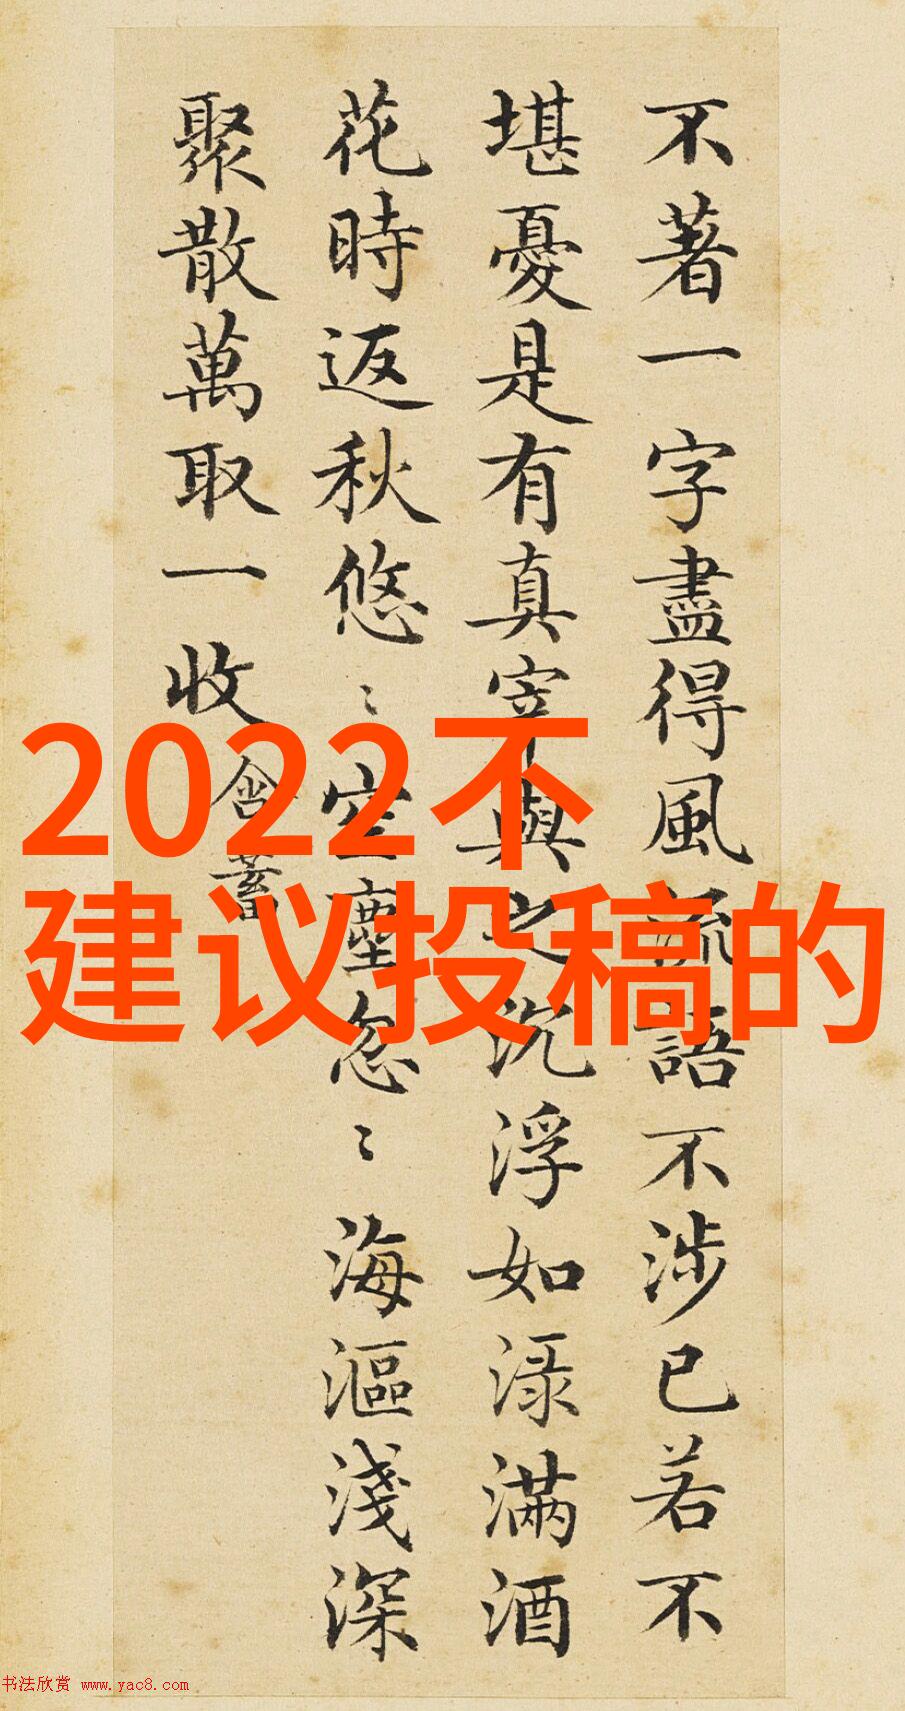 不著一字盡得風流語不涉已若不
堪憂是有真宰與之沉浮如渌滿酒
花時返秋悠〻空塵忽〻海漚淺深
聚散萬取一收 含蓄
2022不
建议投稿的
书法欣赏 www.yac8.com